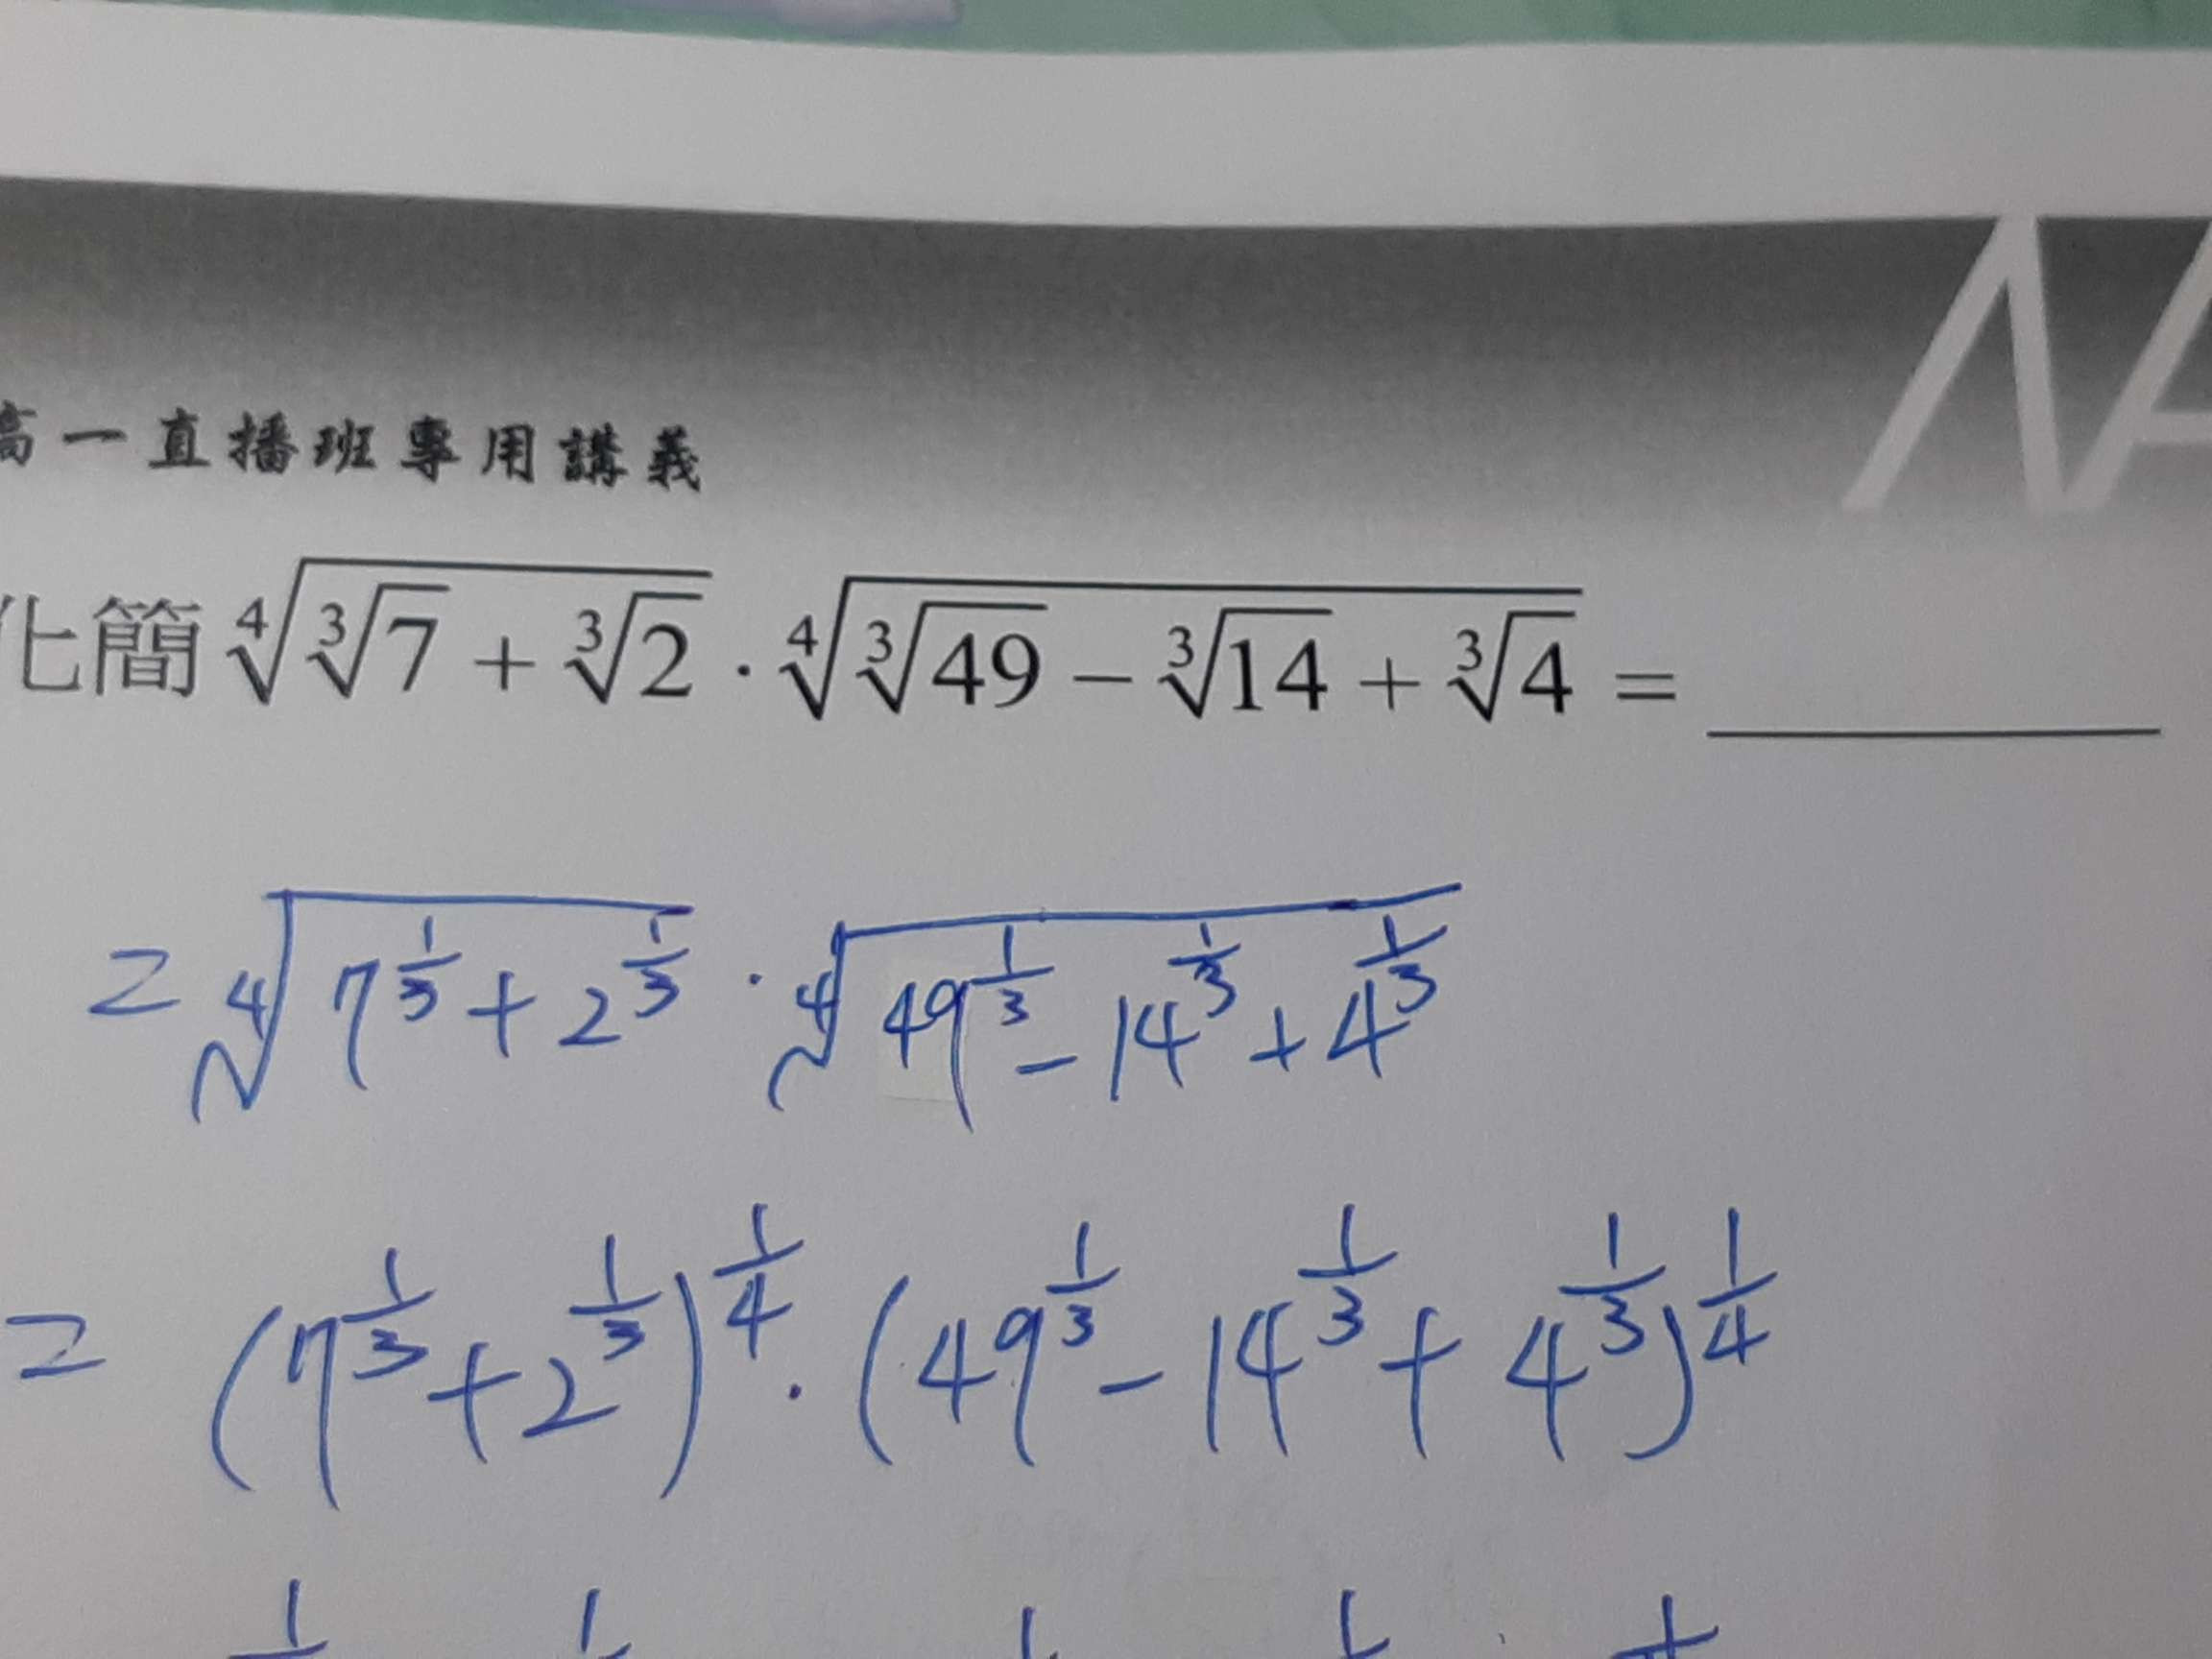 高一直播班專用講義
NA
化簡 \sqrt[4]{\sqrt[3]{7} + \sqrt[3]{2}} · \sqrt[4]{\sqrt[3]{49} − \sqrt[3]{14} + \sqrt[3]{4}} = ______
= \sqrt[4]{7^{\frac{1}{3}} + 2^{\frac{1}{3}}} · \sqrt[4]{49^{\frac{1}{3}} − 14^{\frac{1}{3}} + 4^{\frac{1}{3}}}
= (7^{\frac{1}{3}} + 2^{\frac{1}{3}})^{\frac{1}{4}} · (49^{\frac{1}{3}} − 14^{\frac{1}{3}} + 4^{\frac{1}{3}})^{\frac{1}{4}}